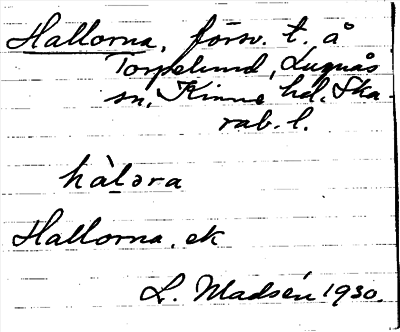 Hallorna, försv. t. å
Torpelund, Lugnås
sn, Kinne hd. Ska-
rab. l.
hàl̠əra
Hallorna, ek
L. Madsén 1930.